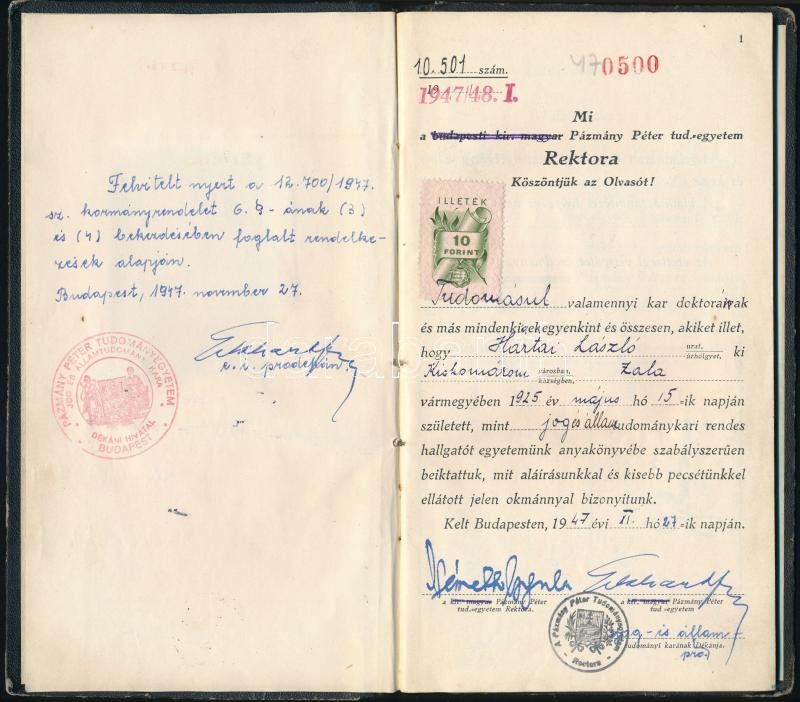 Felvitelt nyert a 12.700/1947.
sz. kormányrendelet 6. §-ának (3)
és (4) bekezdésében foglalt rendelke-
zések alapján.
Budapest, 1947. november 27.
prodékán.
PÁZMÁNY PÉTER TUDOMÁNYEGYETEM
JOG ÉS ÁLLAMTUDOMÁNYI KARA
DÉKÁNI HIVATAL
BUDAPEST
1
10.501 szám.
470500
19
1947/48. I.
Mi
a budapesti kir. magyar Pázmány Péter tud.-egyetem
Rektora
Köszöntjük az Olvasót!
ILLETÉK
10
FORINT
Tudomásul valamennyi kar doktorainak
és más mindenkinek egyenkint és összesen, akiket illet,
hogy Hartai László urat, úrhölgyet, ki
Kiskomárom városban, községben, Zala
vármegyében 1925 év május hó 15-ik napján
született, mint jog és állam tudománykari rendes
hallgatót egyetemünk anyakönyvébe szabályszerűen
beiktattuk, mit aláírásunkkal és kisebb pecsétünkkel
ellátott jelen okmánnyal bizonyítunk.
Kelt Budapesten, 1947 évi XI. hó 27-ik napján.
Németh Gyula
a kir. magyar Pázmány Péter
tud.-egyetem Rektora.
a kir. magyar Pázmány Péter
tud egyetem
jog- és állam-
tudományi karának Dékánja.
pro.)
A Pázmány Péter Tudományegyetem
Rectora